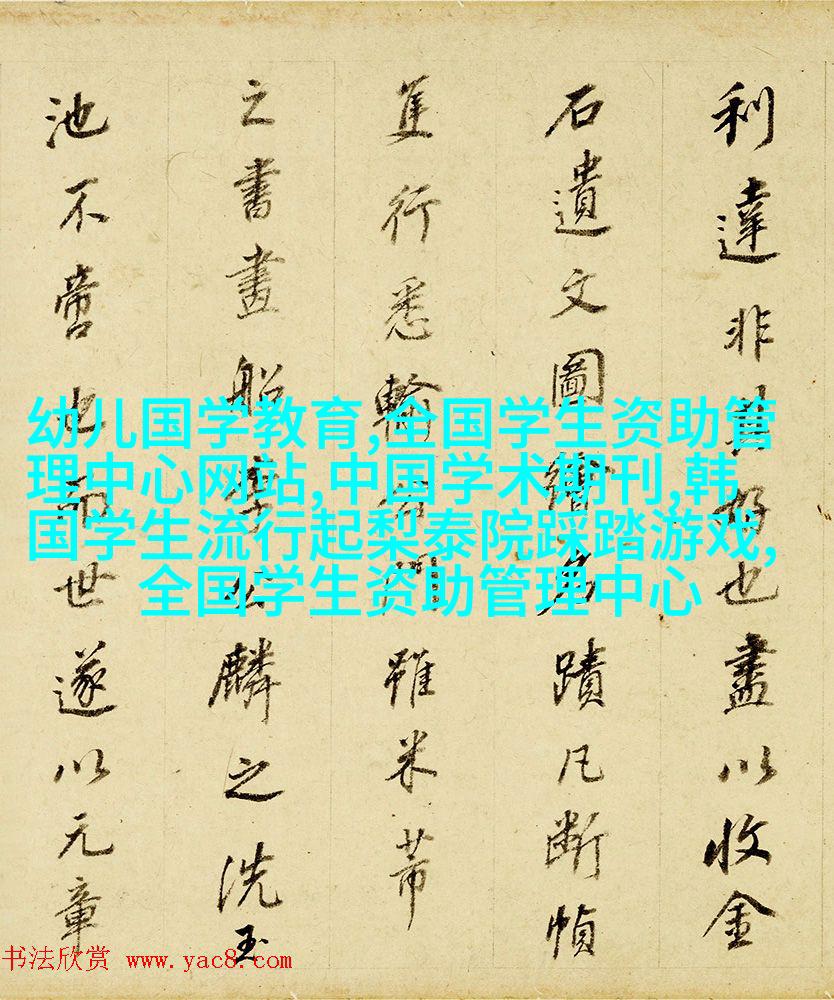 利達非其好也盡以收金
石遺文圖繪名蹟凡斷幀
隻行悉輪 雖米芾
之書畫船李公麟之洗玉
池不啻也 世遂以元章
幼儿国学教育,全国学生资助管
理中心网站,中国学术期刊,韩
国学生流行起梨泰院踩踏游戏,
全国学生资助管理中心
书法欣赏 www.yac8.com